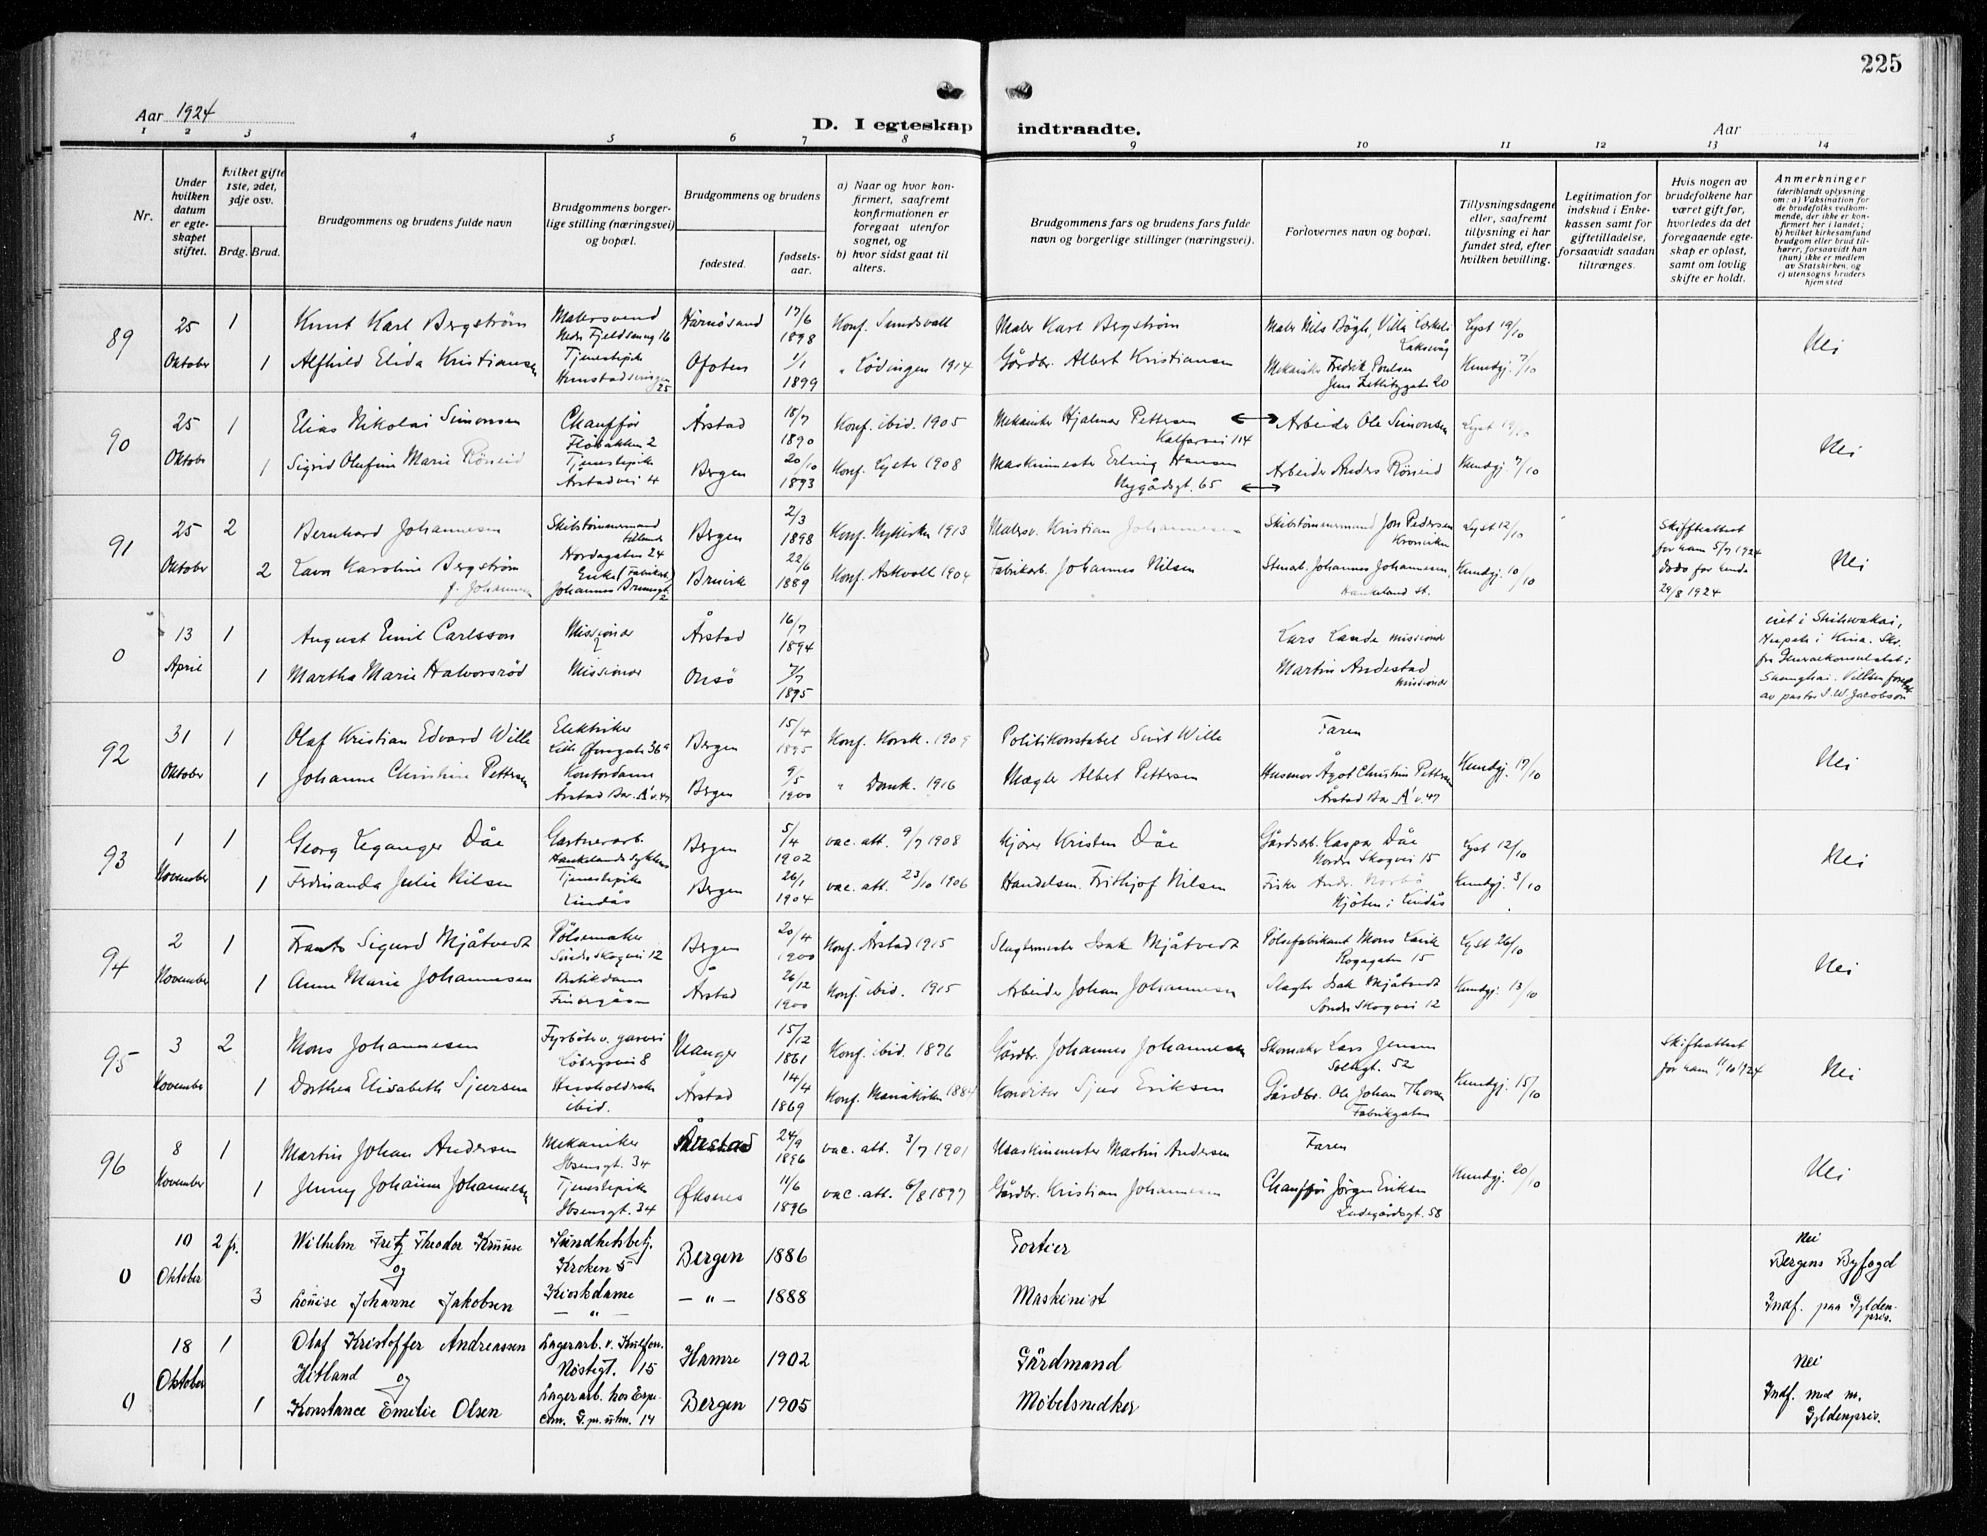 225
Aar 1924
D. I egteskap indtraadte.
Aar
1 2 3 4 5 6 7 8 9 10 11 12 13 14
Nr.
Under hvilken datum er egteskapet stiftet.
Hvilket gifte 1ste, 2det, 3dje osv.
Brdg. Brud.
Brudgommens og brudens fulde navn
Brudgommens borgerlige stilling (næringsvei) og bopæl.
Brudgommens og brudens
fødested. fødselsaar.
a) Naar og hvor konfirmert, saafremt konfirmationen er foregaat utenfor sognet, og
b) hvor sidst gaat til alters.
Brudgommens fars og brudens fars fulde navn og borgerlige stillinger (næringsvei).
Forlovernes navn og bopæl.
Tillysningsdagene eller, saafremt tillysning ei har fundet sted, efter hvilken bevilling.
Legitimation for indskud i Enkekassen samt for giftetilladelse, forsaavidt saadan tiltrænges.
Hvis nogen av brudefolkene har været gift før, hvorledes da det foregaaende egteskap er opløst, samt om lovlig skifte er holdt.
Anmerkninger (deriblandt oplysning om: a) Vaksination for de brudefolks vedkommende, der ikke er konfirmert her i landet; b) hvilket kirkesamfund brudgom eller brud tilhører, forsaavidt han (hun) ikke er medlem av Statskirken, og c) utensogns bruders hjemsted
89 25 1 Knut Karl Bergström Malersvend Nedr. Fjeldsmug 16 Härnösand 17/6 1898 Konf. Sundsvall Maler Karl Bergström Maler Nils Bøgh, Villa Lerkeli Laksevåg Lyst 19/10
Oktober 1 Alfhild Elida Kristiansen Tjenestepike 25 Ofoten 1/1 1899 " Lødingen 1914 Gårdbr. Albert Kristiansen Mekaniker Fredrik Poulsen Jens Zetlitzgate 20 Kundgj. 7/10 Nei
90 25 1 Elias Nikolai Simonsen Chauffør Fløbakken 2 Årstad 18/7 1890 Konf. ibid. 1905 Mekaniker Hjalmar Pettersen Kalfarvei 114 Arbeider Ole Simonsen Lyst 19/10
Oktober 1 Sigrid Olufine Marie Røneid Tjenestepike Årstadvei 4 Bergen 20/10 1893 Konf. Lyster 1908 Maskinmester Erling Hansen Nygårdsgt. 65 Arbeider Anders Røneid Kundgj. 7/10 Nei
91 25 2 Bernhard Johannesen Skibstømmermand Nordagaten 24 Bergen 2/3 1898 Konf. Nykirken 1913 Malersv. Kristian Johannesen Skibstømmermand Jon Pedersen Kronviken Lyst 12/10 Skifteattest for ham 5/7 1924
Oktober 2 Lava Karoline Bergström f. Johannesen Enke (Fabrikarb.) Johannes Brunsgt 2 Bruvik 22/6 1889 Konf. Askvoll 1904 Fabrikarb. Johannes Nilsen Stenarb. Johannes Johannesen, Haukeland st. Kundgj. 10/10 Dodo for hende 29/8 1924 Nei
0 13 1 August Emil Carlsson Missionær Årstad 16/7 1894 Lars Lande missionær
April 1 Martha Marie Halvorsrød Missionær Onsø 7/7 1895 Martin Andestad missionær
viet i Shihwakai, Hupeh i Kina. Skr. fra Generalkonsulatet i Shanghai. Vielsen foret. av pastor I. W. Jacobson
92 31 1 Olaf Kristian Edvard Wille Elektriker Lille Øvregaten 36a Bergen 15/4 1895 Konf. Korsk. 1909 Politikonstabel Sivert Wille Faren
Oktober 1 Johanne Christine Pettersen Kontordame Årstad Bar. A' v. 47 Bergen 9/5 1900 " Domk. 1916 Mægler Albert Pettersen Husmor Ågot Christine Pettersen Årstad Bar A' v. 47 Kundgj. 17/10 Nei
93 1 1 Georg Leganger Dåe Gartnerarb. Haukelands sykehus Bergen 5/4 1902 vac. att. 9/7 1908 Kjører Kristen Dåe Gårdsarb. Kaspar Dåe Nordre Skogvei 15 Lyst 12/10
November 1 Ferdinanda Julie Nilsen Tjenestepike Lindås Bergen 26/1 1904 vac. att. 23/10 1906 Handelsm. Frithjof Nilsen Fisker Andr. Norbø Mjøten i Lindås Kundgj. 3/10 Nei
94 2 1 Frants Sigurd Mjåtvedt Pølsemaker Søndre Skogvei 12 Bergen 20/4 1900 Konf. Årstad 1915 Slagtermester Isak Mjåtvedt Pølsefabrikant Mons Larik Rogagaten 15 Lyst 26/10
November 1 Anne Marie Johannesen Butikdame Finbergåsen Årstad 26/12 1900 Konf. ibid. 1915 Arbeider Johan Johannesen Slagter Isak Mjåtvedt Søndre Skogvei 12 Kundgj. 13/10 Nei
95 3 2 Mons Johannesen Fyrbøter v. garveri Løbergsvei 8 Manger 15/12 1861 Konf. ibid. 1876 Gårdbr. Johannes Johannesen Skomaker Lars Jensen Solhgt. 52 Skifteattest for ham 11/10 1924
November 1 Dorthea Elisabeth Sjursen Husholderske ibid. Årstad 14/4 1869 Konf. Mariakirken 1884 Konditor Sjur Eriksen Gårdbr. Ole Johan Thorsen Fabrikgaten Kundgj. 15/10 Nei
96 8 1 Martin Johan Andersen Mekaniker Ibsensgt. 34 Årstad 24/9 1896 vac. att. 3/7 1901 Maskinmester Martin Andersen Faren
November 1 Jenny Johanne Johannesen Tjenestepike Ibsensgt. 34 Øksnes 11/6 1896 vac. att. 6/8 1897 Gårdbr. Kristian Johannesen Chauffør Jørgen Eriksen Ladegårdsgt. 58 Kundgj. 20/10 Nei
0 10 Oktober 2 fr. Wilhelm Fritz Theodor Kruuse Sundhetsbetj. Kroken 5 Bergen 1886 Portier Nei
og
3 Louise Johanne Jakobsen Kioskdame — " — — " — 1888 Maskinist Bergens Byfogd Indf. paa Gyldenpris.
0 18 Oktober 1 Olaf Kristoffer Andreassen Hitland Lagerarb. v. Kulfor. Nøstegt. 15 Hamre 1902 Gårdmand Nei
og
1 Konstance Emilie Olsen Lagerarb. hos 14 Bergen 1905 Møbelsnedker Indf. med m. Gyldenpris.